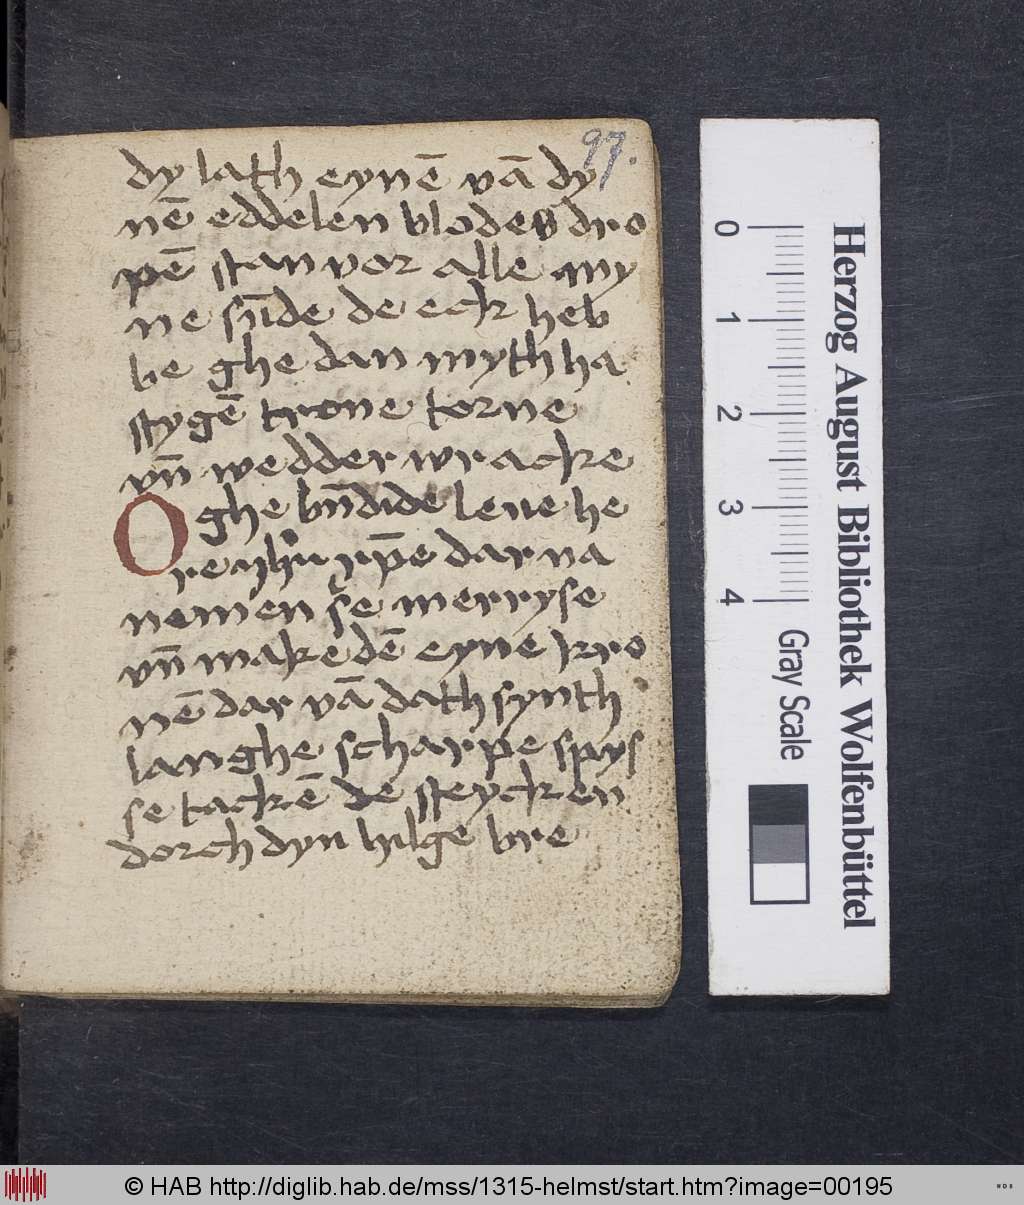 97.
dy lath eynē vā dy
nē eddelen blodes dro
pē stan vor alle my
ne sūde de eck heb
be ghe dan myth ha
stygē trone torne
vn̄ wedder wracke
O ghe bn̄dide leue he
re ihū xp̄e dar na
nemen se merryse
vn̄ make dē eyne kro
nē dar vā dath synth
langhe scharpe spys
se tackē de steycken
dorch dyn hilge bre
0 1 2 3 4
Gray Scale
Herzog August Bibliothek Wolfenbüttel
© HAB http://diglib.hab.de/mss/1315-helmst/start.htm?image=00195